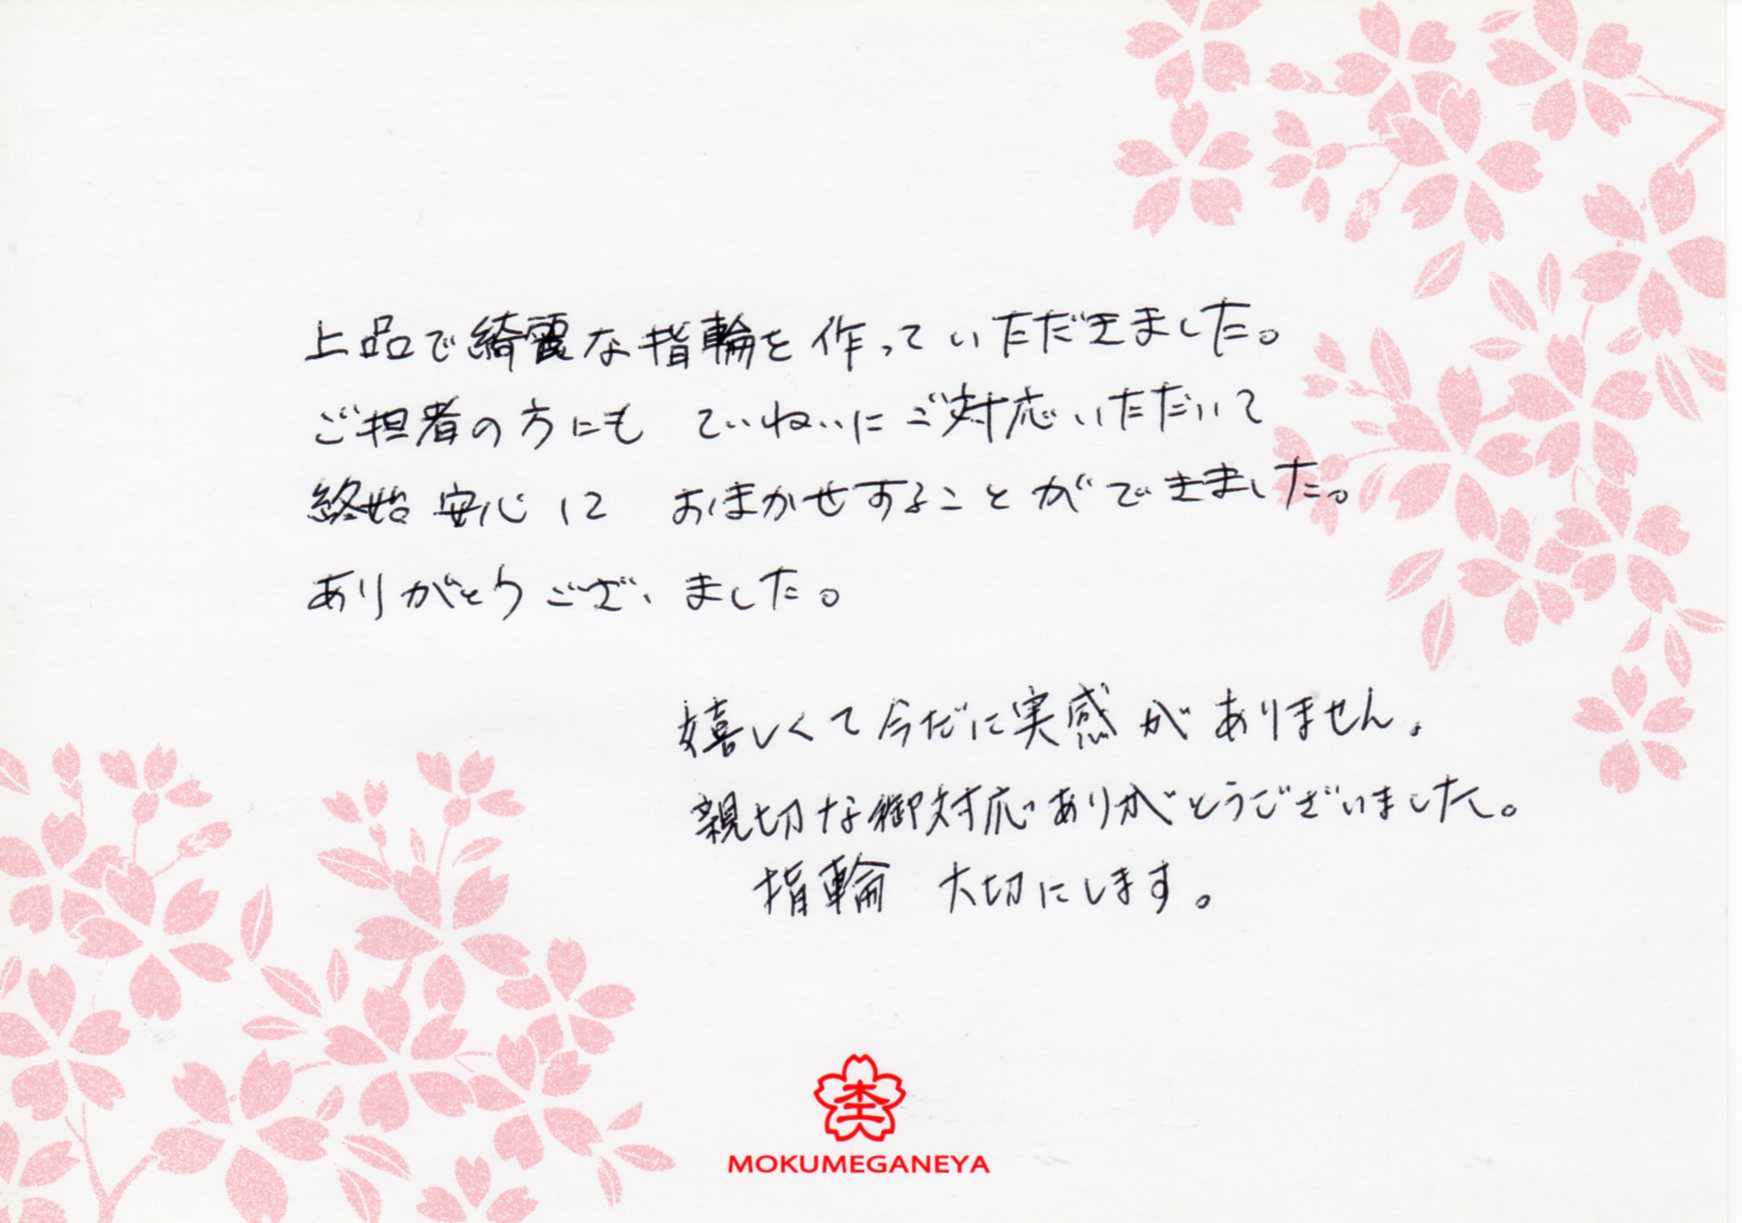 上品で綺麗な指輪を作っていただきました。
ご担者の方にも ていねいにご対応いただいて
終始 安心に おまかせすることができました。
ありがとうございました。
嬉しくて今だに実感がありません。
親切な御対応ありがとうございました。
指輪 大切にします。
MOKUMEGANEYA